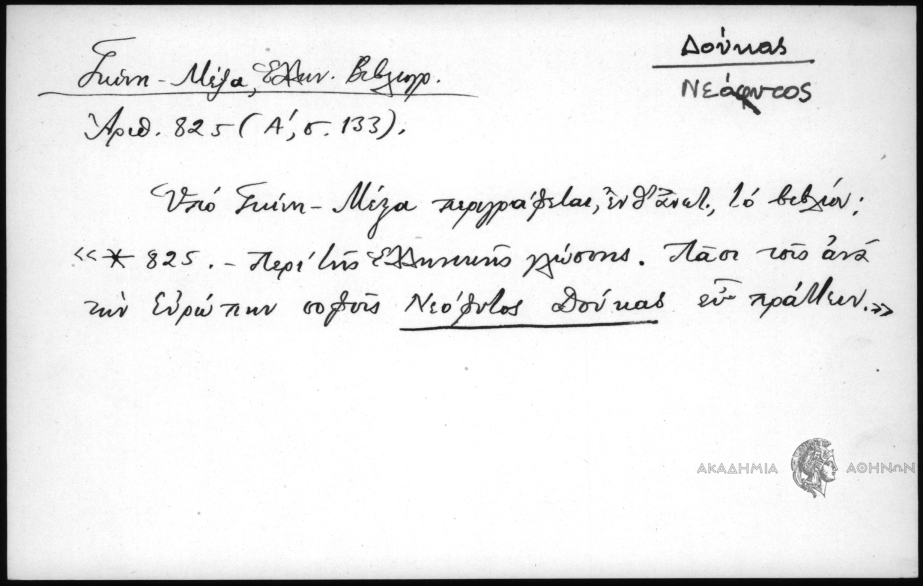 Δούκας
Νεόφυτος
Γκίνη – Μέξα, Ἑλλην. Βιβλιογρ.
Ἀριθ. 825 (Α΄, σ. 133).
Ὑπό Γκίνη – Μέξα περιγράφεται, ἔνθ᾽ ἀνωτ., τό βιβλίον:
«* 825. – Περί τῆς Ἑλληνικῆς γλώσσης. Πᾶσι τοῖς ἀνά
τήν Εὐρώπην σοφοῖς Νεόφυτος Δούκας εὖ πράττειν.»
ΑΚΑΔΗΜΙΑ ΑΘΗΝΩΝ